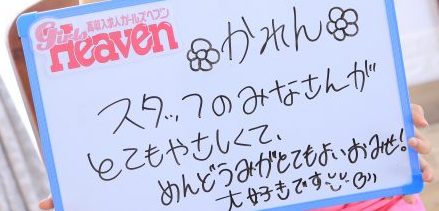 高収入求人ガールズヘブン
Girls Heaven
かれん
スタッフのみなさんが
とてもやさしくて、
めんどうみがとてもよいおみせ!
大好きです